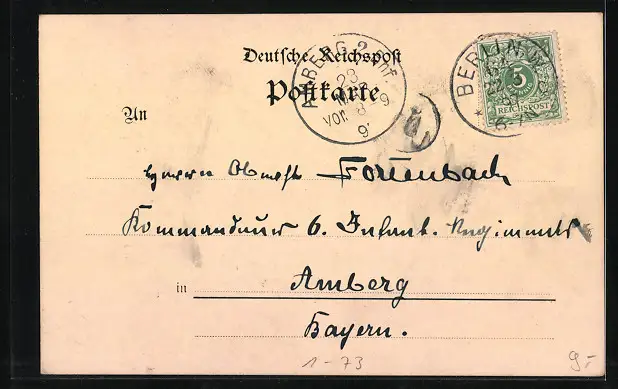 Deutsche Reichspost
Postkarte
An
AMBERG 2
23
VOR. 8-9
BERLIN, W.
22
6-7N
5
REICHSPOST
Herrn Oberst Fortenbach
Kommandeur 6. Infant. Regiments
in Amberg
Bayern.
1-73
9.-